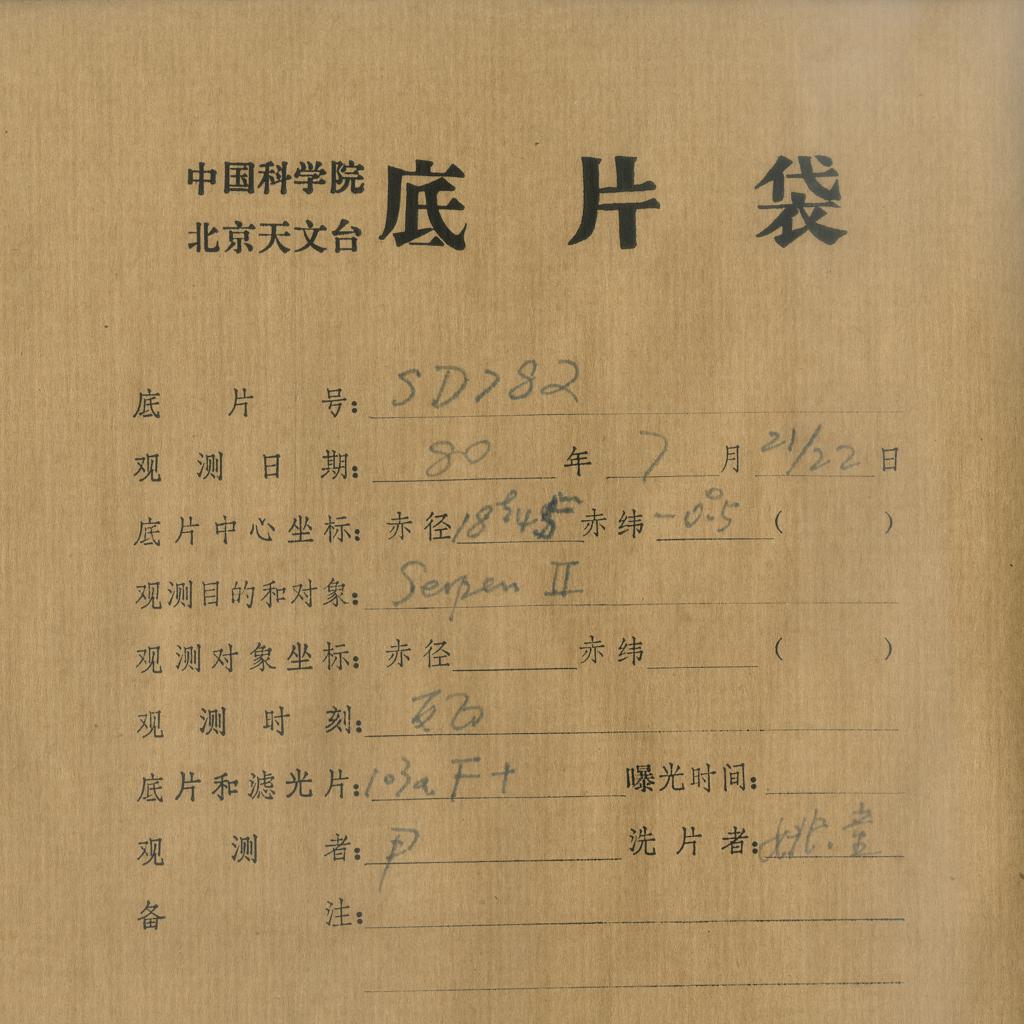 中国科学院
北京天文台
底片袋
底片号: SD782
观测日期: 80年7月21/22日
底片中心坐标: 赤径18h45m赤纬-0°.5( )
观测目的和对象: Serpen II
观测对象坐标: 赤径 赤纬 ( )
观测时刻:
底片和滤光片: 103aF+ 曝光时间:
观测者: 洗片者: 姚
备注: